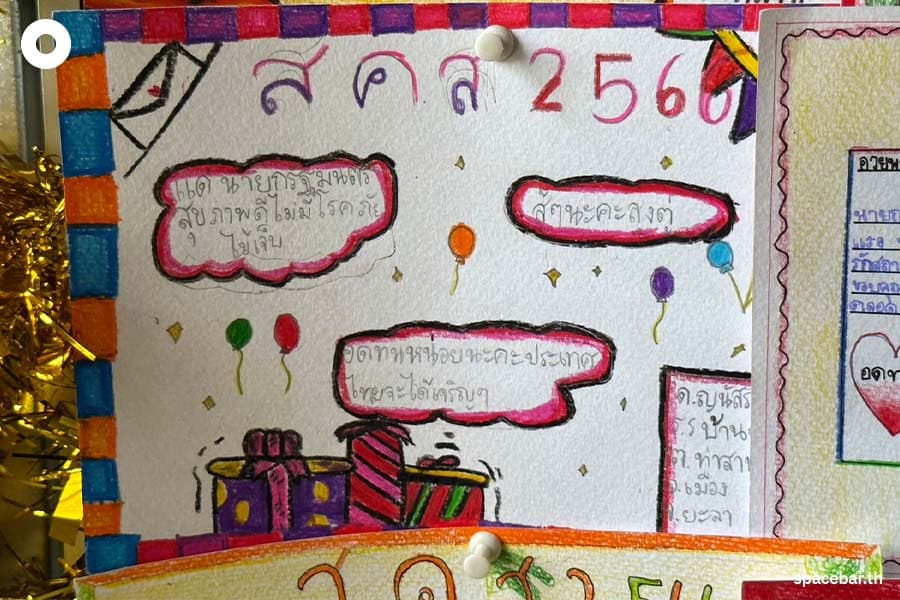 ส ค ส 2566
แด่ นายกรัฐมนตรี
สุขภาพดีไม่มีโรคภัย
ไข้เจ็บ
สู้ๆนะคะลุงตู่
อดทนหน่อยนะคะประเทศ
ไทยจะได้เจริญๆ
ด.ญนัสร
ร.ร บ้าน
ต. ท่าสา
อ.เมือง
จ.ยะลา
อวยพ
นาย
แรง
รักสถา
ขอบคุณ
ตลอด
อดท
spacebar.th